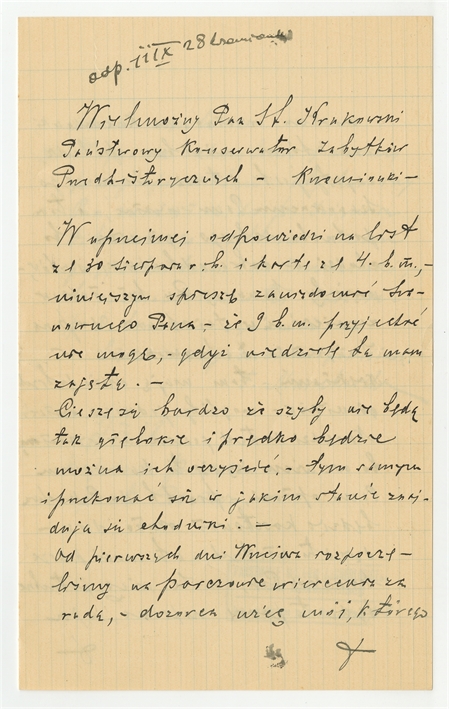 odp. 11 IX 28 Krzemionki
Wielmożny Pan St. Krukowski
Państwowy Konserwator Zabytków
Przedhistorycznych – Krzemionki –
W uprzejmej odpowiedzi na list
z d 30 sierpnia r.b. i kartę z d 4. b.m.,-
niniejszym spieszę zawiadomić Sza-
nownego Pana – że 9 b.m. przyjechać
nie mogę,- gdyż niedzielę tą mam
zajętą. –
Cieszę się bardzo że szyby nie będą
tak głębokie i prędko będzie
można ich oczyścić,- tym samym
i przekonać się w jakim stanie znaj-
dują się chodniki. –
Od pierwszych dni Września rozpoczę-
liśmy na Borczowie wiercenia za
rudą,- dozorca więc mój, którego